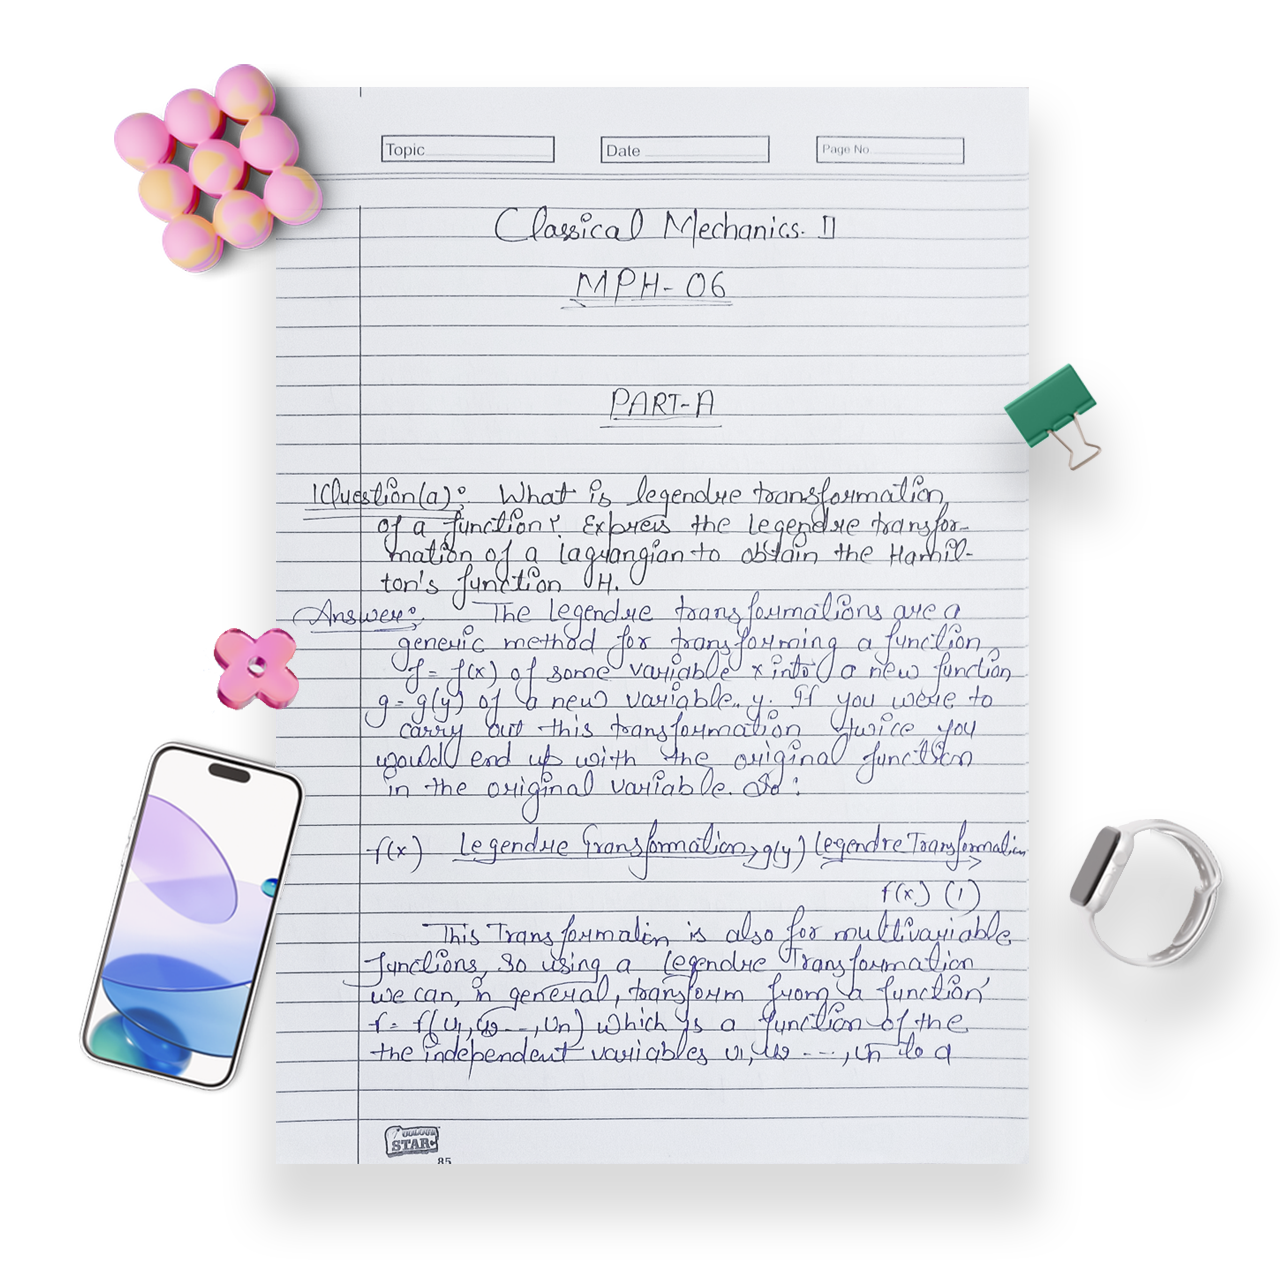 Topic
Date
Page No
Classical Mechanics. II
MPH-06
PART-A
1Question(a): What is legendre transformation
of a function? Express the legendre transfor-
mation of a lagrangian to obtain the Hamil-
ton's function H.
Answer: The legendre transformations are a
generic method for transforming a function
f = f(x) of some variable x into a new function
g = g(y) of a new variable y. If you were to
carry out this transformation twice you
would end up with the original function
in the original variable. So:
f(x) Legendre Transformation> g(y) Legendre Transformation
f(x) (1)
This Transformation is also for multivariable
functions, so using a Legendre Transformation
we can, in general, transform from a function
f = f(u1, u2 ---, un) which is a function of the
the independent variables u1, u2 ---, un to a
COLOUR
STAR
85